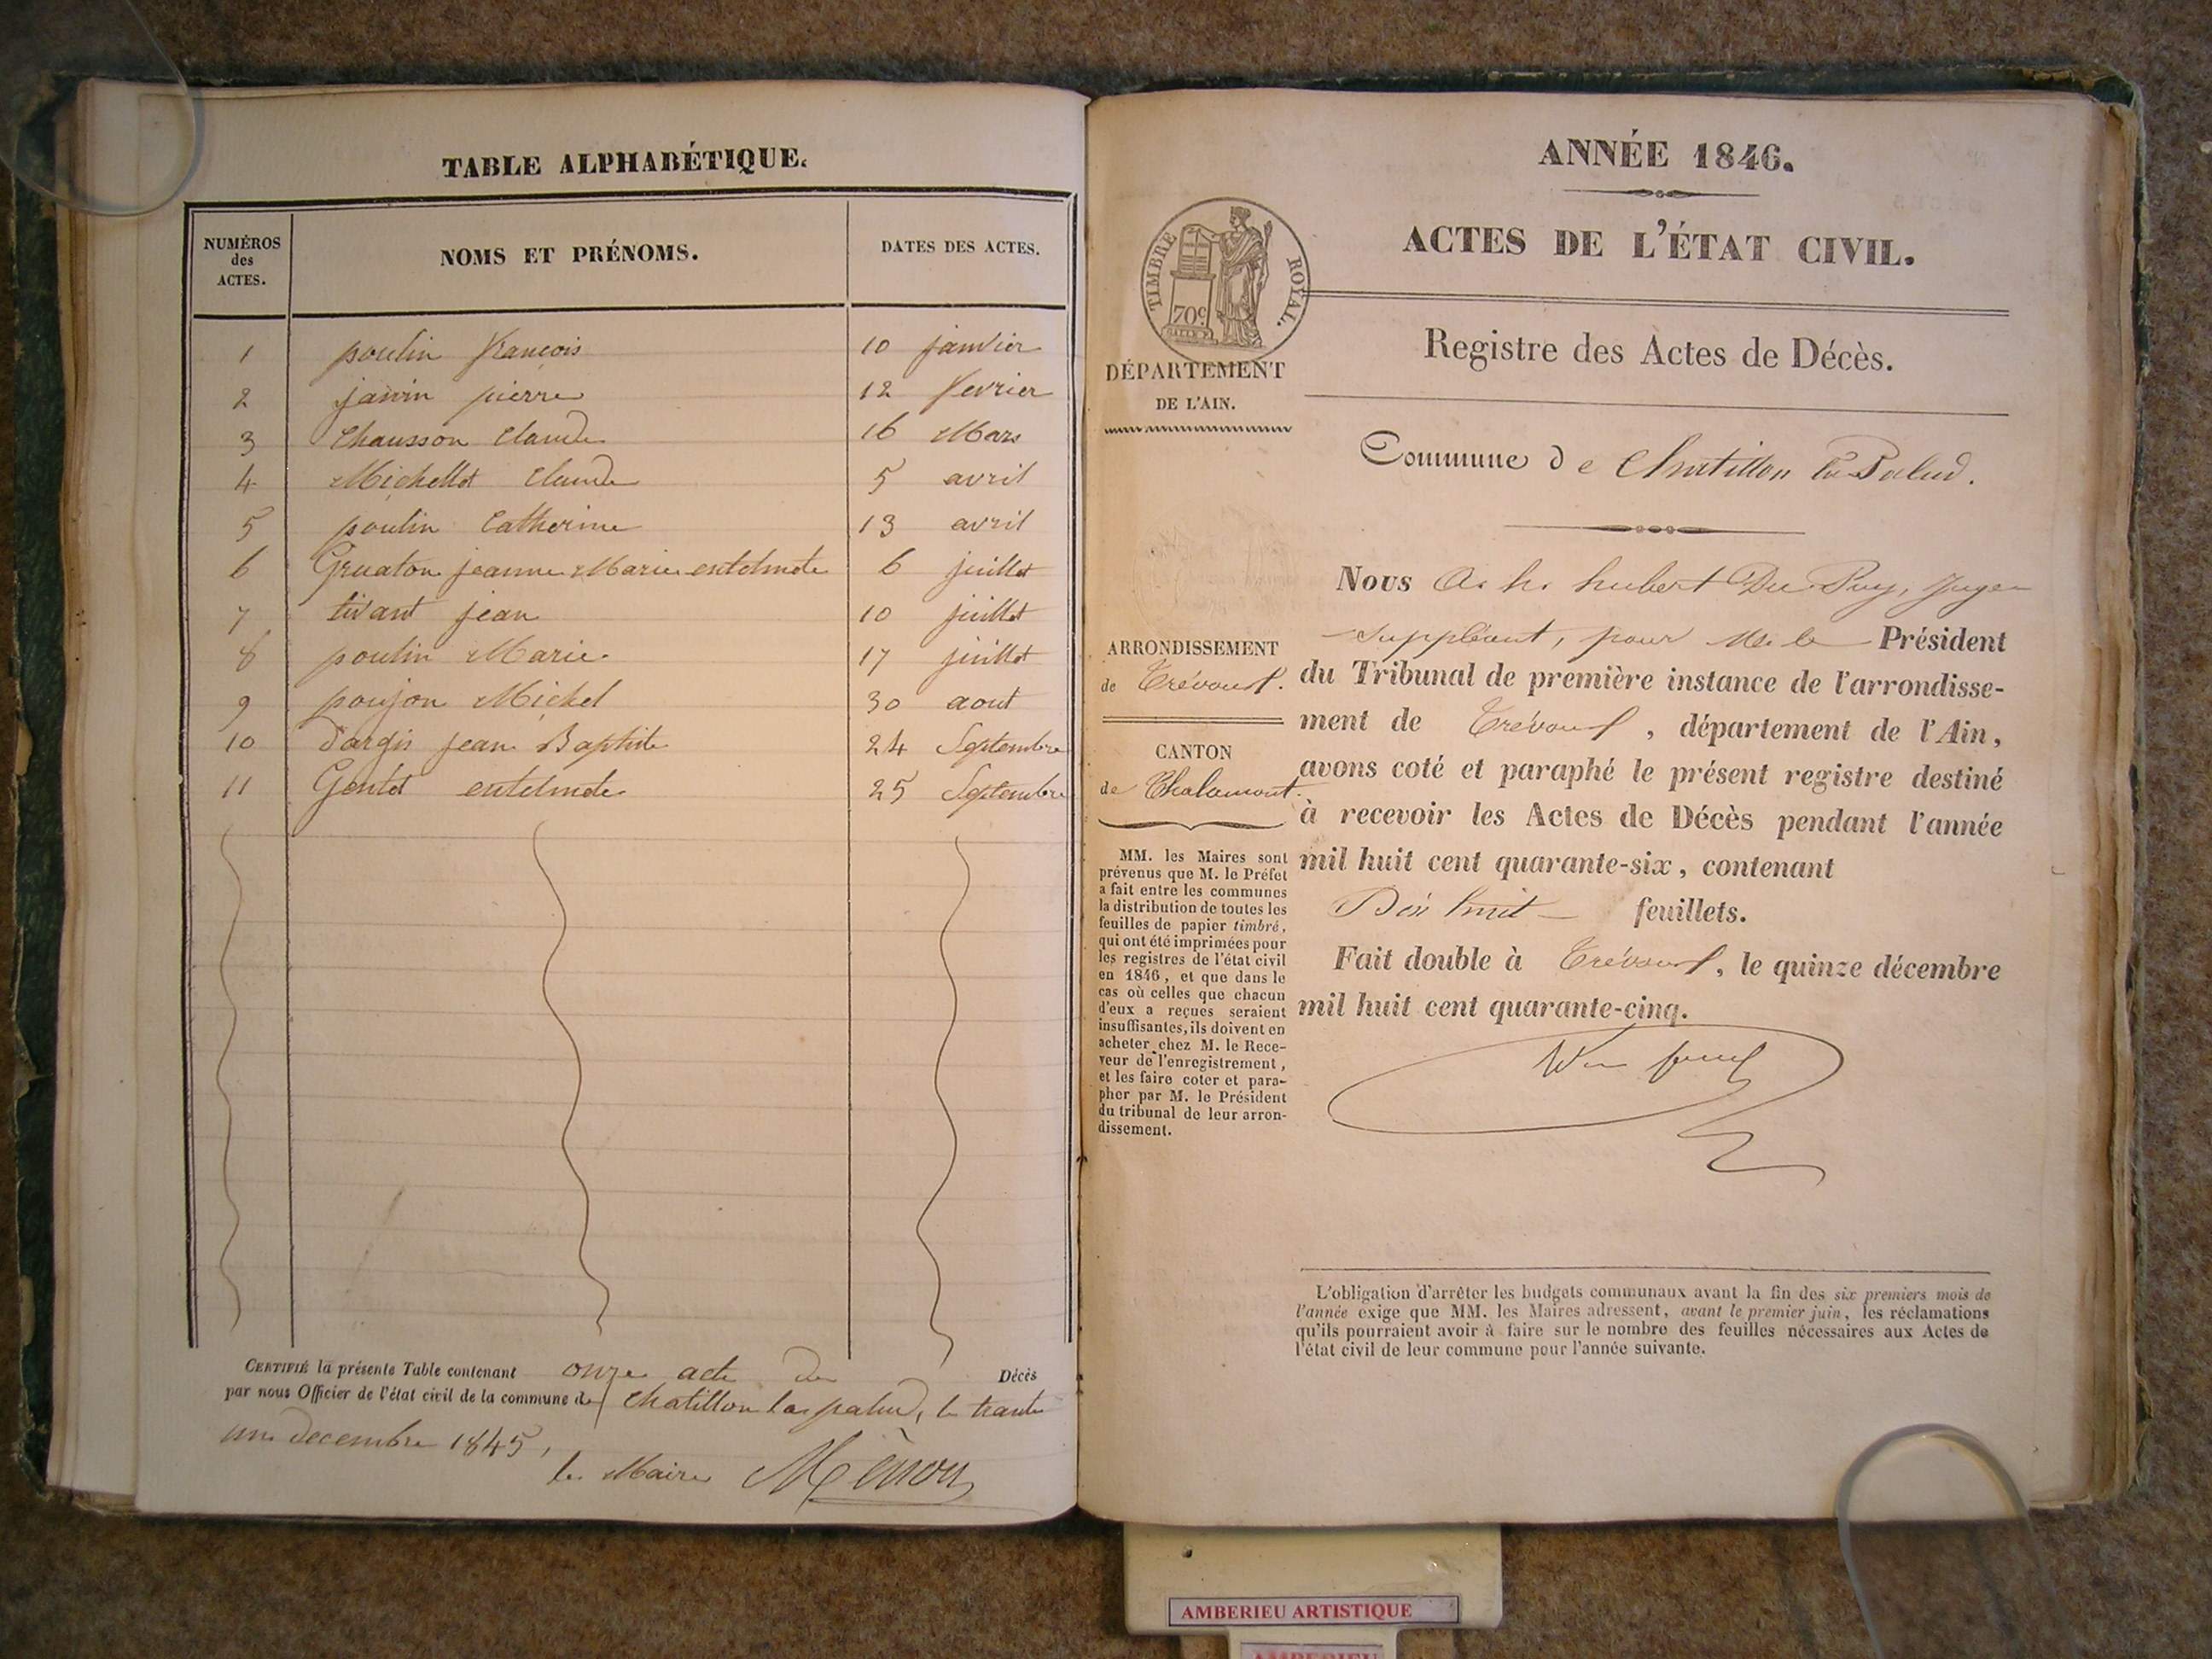 TABLE ALPHABÉTIQUE.
NUMÉROS des ACTES.
NOMS ET PRÉNOMS.
DATES DES ACTES.
1 poulin françois 10 janvier
2 janin pierre 12 fevrier
3 Chausson Claude 16 Mars
4 Michellot Claude 5 avril
5 poulin Catherine 13 avril
6 Gruaton jeanne Marie 6 juillet
7 tivant jean 10 juillet
8 poulin Marie 17 juillet
9 poujon Michel 30 aout
10 Dargis jean Baptiste 24 Septembre
11 25 Septembre
CERTIFIÉ la présente Table contenant onze acte de Décès
par nous Officier de l'état civil de la commune de Chatillon la palud, le trante
un decembre 1845,
le Maire
ANNÉE 1846.
ACTES DE L'ÉTAT CIVIL.
TIMBRE ROYAL.
70c
Registre des Actes de Décès.
DÉPARTEMENT
DE L'AIN.
Commune de Chatillon la Palud.
ARRONDISSEMENT
de Trévoux.
CANTON
de Chalamont.
MM. les Maires sont
prévenus que M. le Préfet
a fait entre les communes
la distribution de toutes les
feuilles de papier timbré,
qui ont été imprimées pour
les registres de l'état civil
en 1846, et que dans le
cas où celles que chacun
d'eux a reçues seraient
insuffisantes, ils doivent en
acheter chez M. le Rece-
veur de l'enregistrement,
et les faire coter et para-
pher par M. le Président
du tribunal de leur arron-
dissement.
Nous hubert Du Puy, Juge
suppléant, pour M. le Président
du Tribunal de première instance de l'arrondisse-
ment de Trévoux, département de l'Ain,
avons coté et paraphé le présent registre destiné
à recevoir les Actes de Décès pendant l'année
mil huit cent quarante-six, contenant
Dix huit feuillets.
Fait double à Trévoux, le quinze décembre
mil huit cent quarante-cinq.
L'obligation d'arrêter les budgets communaux avant la fin des six premiers mois de
l'année exige que MM. les Maires adressent, avant le premier juin, les réclamations
qu'ils pourraient avoir à faire sur le nombre des feuilles nécessaires aux Actes de
l'état civil de leur commune pour l'année suivante.
AMBERIEU ARTISTIQUE
AMBERIEU